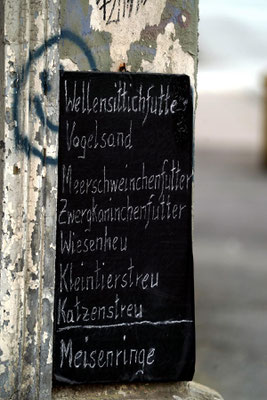 Wellensittichfutter
Vogelsand
Meerschweinchenfutter
Zwergkaninchenfutter
Wiesenheu
Kleintierstreu
Katzenstreu
Meisenringe